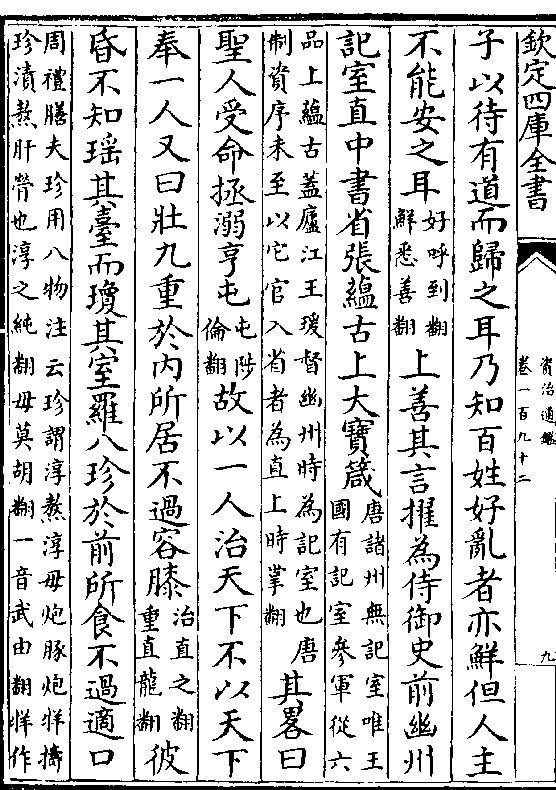 欽定四庫全書
資治通鑑
卷一百九十二
九
子以待有道而歸之耳乃知百姓好亂者亦鮮但人主
不能安之耳好呼到翻鮮悉善翻上善其言擢為侍御史前幽州
記室直中書省張蘊古上大寳箴唐諸州無記室唯王國有記室參軍從六
品上蘊古蓋廬江王瑗督幽州時為記室也唐制資序未至以它官入省者為直上時掌翻其畧曰
聖人受命拯溺亨屯屯陟倫翻故以一人治天下不以天下
奉一人又曰壯九重於内所居不過容膝治直之翻重直龍翻彼
昏不知瑶其臺而瓊其室羅八珍於前所食不過適口
周禮膳夫珍用八物注云珍謂淳熬淳毋炮豚炮牂擣
珍漬熬肝膋也淳之純翻毋莫胡翻一音武由翻牂作